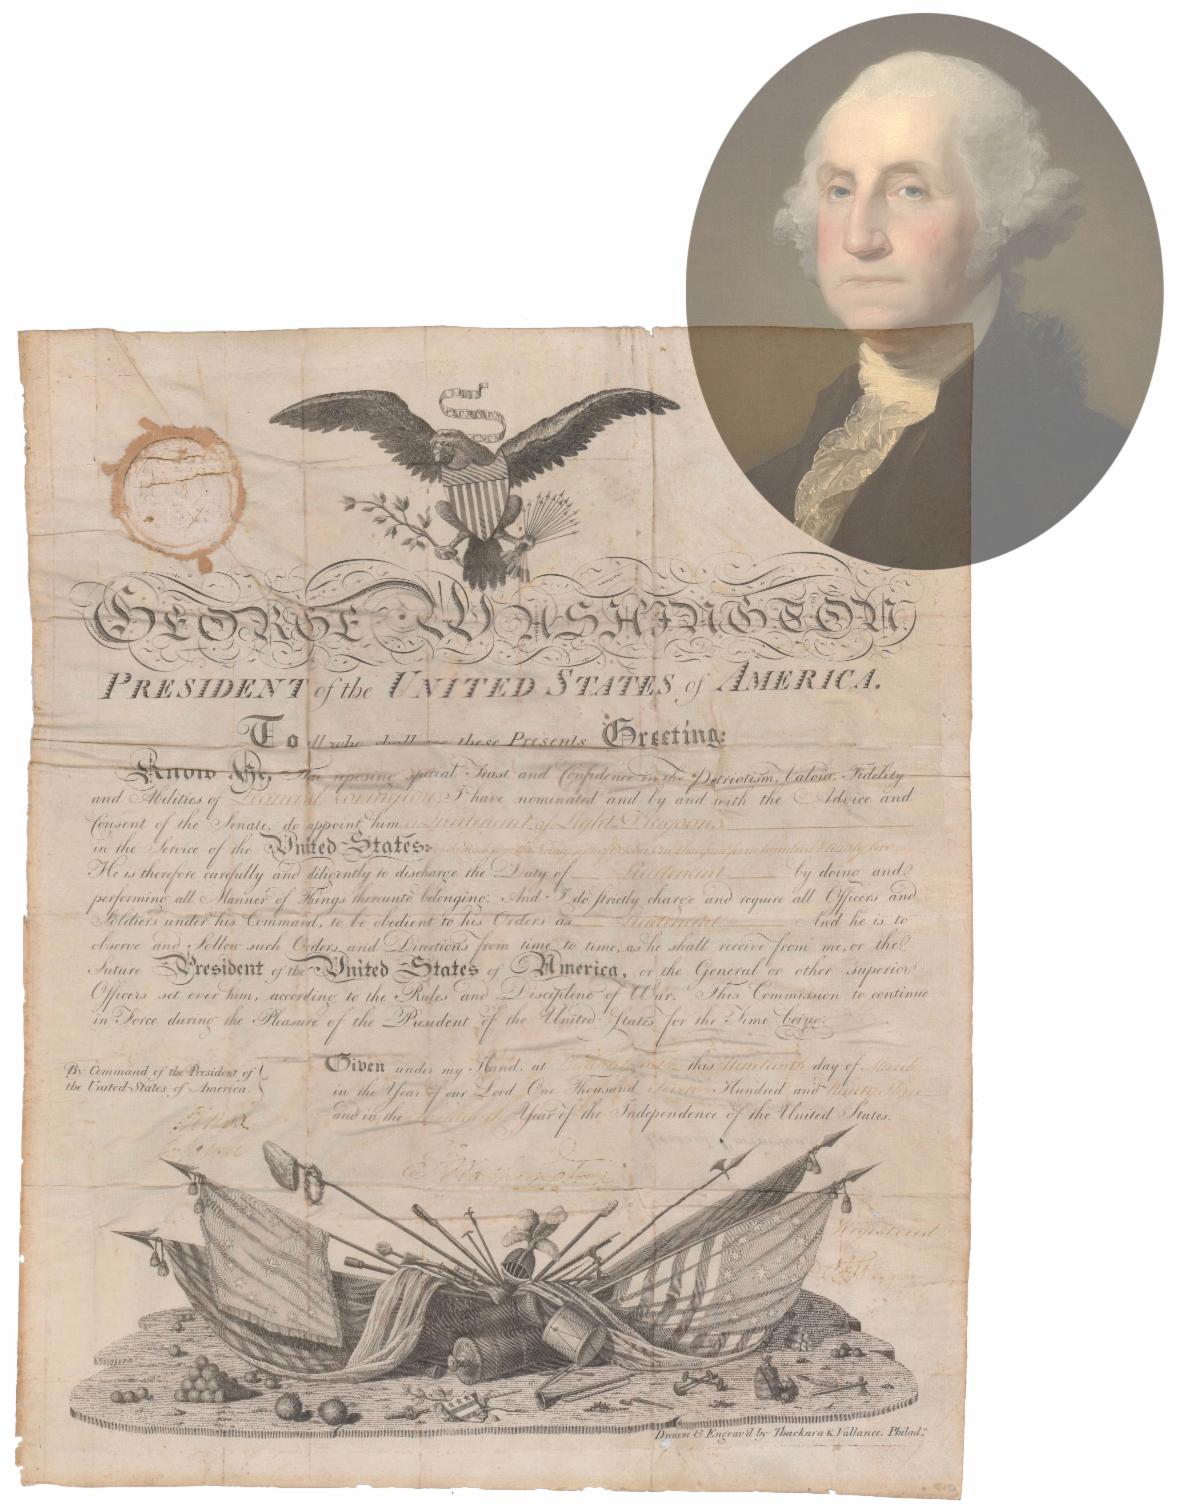 GEORGE WASHINGTON
PRESIDENT of the UNITED STATES of AMERICA.
To all who shall see these Presents Greeting:
Know Ye, That reposing special Trust and Confidence in the Patriotism, Valour, Fidelity
and Abilities of Leonard Covington I have nominated and by and with the Advice and
Consent of the Senate, do appoint him a Lieutenant of Light Dragoons
in the Service of the United States:
He is therefore carefully and diligently to discharge the Duty of Lieutenant by doing and
performing all Manner of Things thereunto belonging. And I do strictly charge and require all Officers and
Soldiers under his Command, to be obedient to his Orders as Lieutenant And he is to
observe and follow such Orders and Directions from time to time, as he shall receive from me, or the
future President of the United States of America, or the General or other superior
Officers set over him, according to the Rules and Discipline of War. This Commission to continue
in Force during the Pleasure of the President of the United States for the Time being.
Given under my Hand, at this day of
in the Year of our Lord One Thousand Seven Hundred and Ninety three
and in the Year of the Independence of the United States.
By Command of the President of
the United States of America.
HKnox
Go Washington
Registered
Drawn & Engrav'd by Thackara & Vallance. Philada.